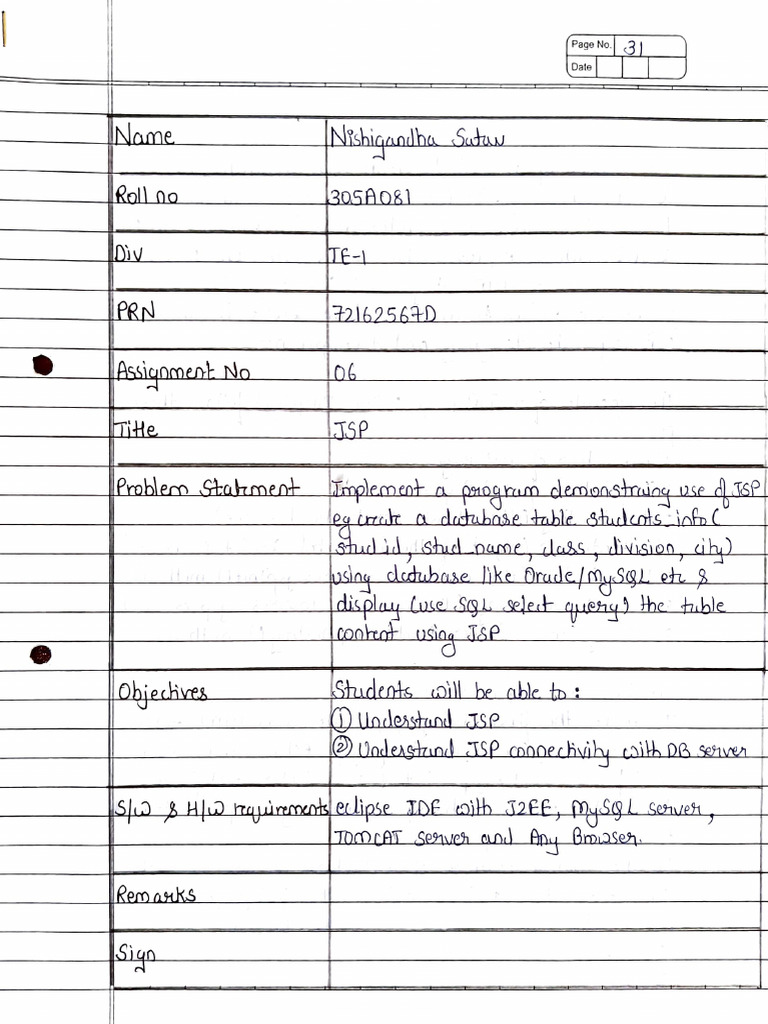 Page No. 31
Date
Name Nishigandha Sutar
Roll no 305A081
Div TE-1
PRN 72162567D
Assignment No 06
Title JSP
Problem Statment Implement a program demonstraing use of JSP
eg create a database table students_info(
stud id, stud_name, class, division, city)
using database like Oracle/MySQL etc &
display (use SQL select query) the table
content using JSP
Objectives Students will be able to :
① Understand JSP
② Understand JSP connectivity with DB server
S/W & H/W requirements eclipse IDE with J2EE, MySQL server,
TOMCAT server and Any Browser.
Remarks
Sign